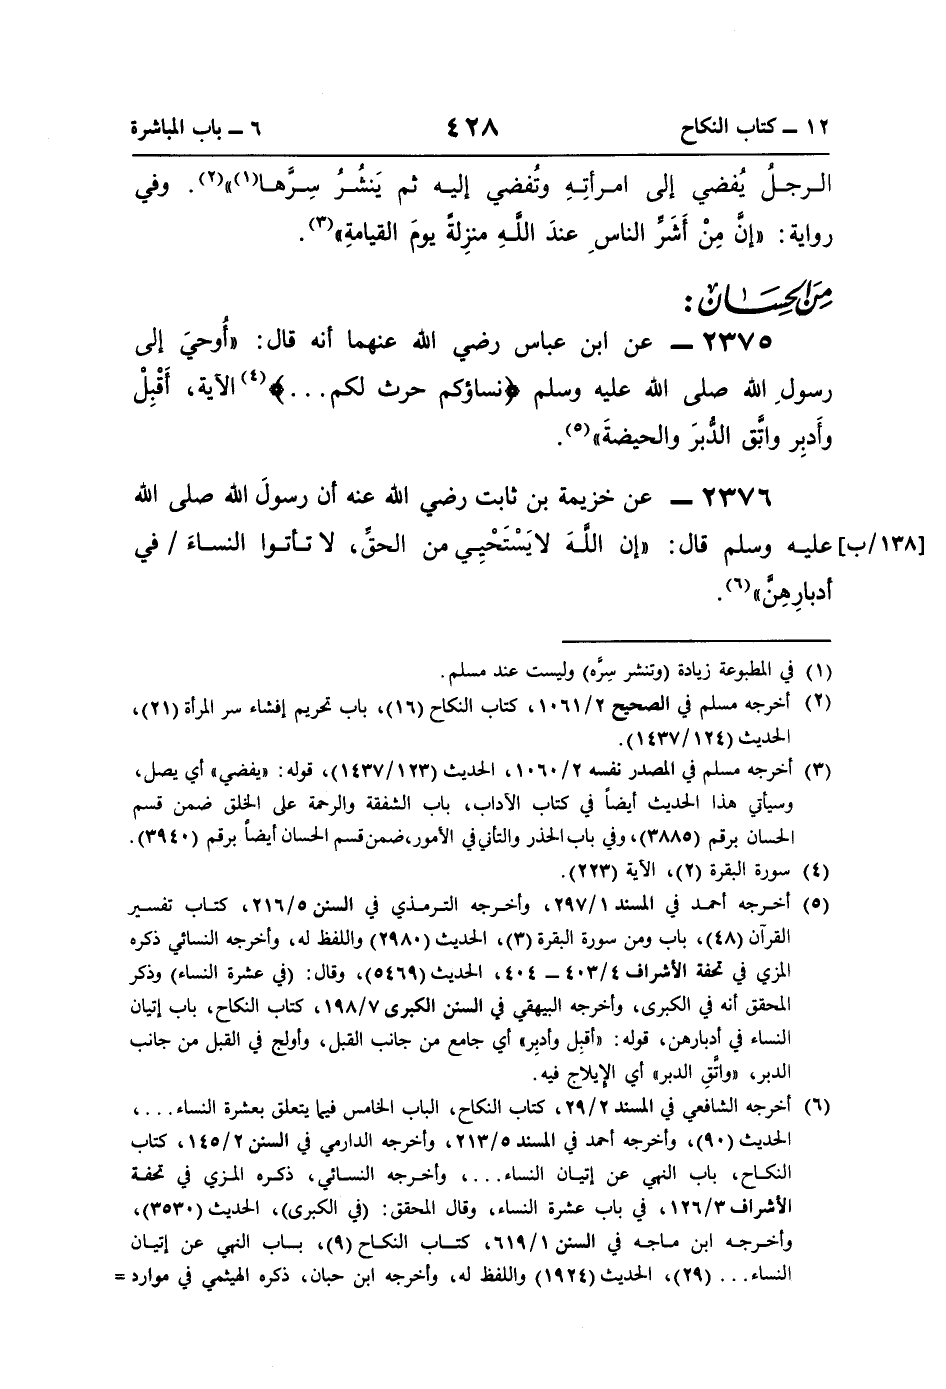 ١٢ ــ كتاب النكاح ٤٢٨ ٦ ــ باب المباشرة
الرجلُ يُفضي إلى امرأتِهِ وتُفضي إليه ثم يَنشُرُ سِرَّها(١)»(٢). وفي
رواية: «إنَّ مِنْ أَشَرِّ الناسِ عندَ اللَّهِ منزِلةً يومَ القيامةِ»(٣).
مِنَ الحِسَان:
٢٣٧٥ ــ عن ابن عباس رضي الله عنهما أنه قال: «أُوحيَ إلى
رسولِ الله صلى الله عليه وسلم ﴿نساؤكم حرث لكم...﴾(٤) الآية، أَقْبِلْ
وأَدبِر واتَّق الدُّبرَ والحيضةَ»(٥).
٢٣٧٦ ــ عن خزيمة بن ثابت رضي الله عنه أن رسولَ الله صلى الله
[١٣٨/ب] عليه وسلم قال: «إن اللَّهَ لا يَسْتَحْيِي من الحقِّ، لا تأتوا النساءَ / في
أدبارِهِنَّ»(٦).
(١) في المطبوعة زيادة (وتنشر سِرَّه) وليست عند مسلم.
(٢) أخرجه مسلم في الصحيح ١٠٦١/٢، كتاب النكاح (١٦)، باب تحريم إفشاء سر المرأة (٢١)،
الحديث (١٤٣٧/١٢٤).
(٣) أخرجه مسلم في المصدر نفسه ١٠٦٠/٢، الحديث (١٤٣٧/١٢٣)، قوله: «يفضي» أي يصل،
وسيأتي هذا الحديث أيضاً في كتاب الآداب، باب الشفقة والرحمة على الخلق ضمن قسم
الحسان برقم (٣٨٨٥)، وفي باب الحذر والتأني في الأمور، ضمن قسم الحسان أيضاً برقم (٣٩٤٠).
(٤) سورة البقرة (٢)، الآية (٢٢٣).
(٥) أخرجه أحمد في المسند ٢٩٧/١، وأخرجه الترمذي في السنن ٢١٦/٥، كتاب تفسير
القرآن (٤٨)، باب ومن سورة البقرة (٣)، الحديث (٢٩٨٠) واللفظ له، وأخرجه النسائي ذكره
المزي في تحفة الأشراف ٤٠٣/٤ ــ ٤٠٤، الحديث (٥٤٦٩)، وقال: (في عشرة النساء) وذكر
المحقق أنه في الكبرى، وأخرجه البيهقي في السنن الكبرى ١٩٨/٧، كتاب النكاح، باب إتيان
النساء في أدبارهن، قوله: «أقبِل وأدبِر» أي جامع من جانب القبل، وأولج في القبل من جانب
الدبر، «واتَّقِ الدبر» أي الإيلاج فيه.
(٦) أخرجه الشافعي في المسند ٢٩/٢، كتاب النكاح، الباب الخامس فيما يتعلق بعشرة النساء...،
الحديث (٩٠)، وأخرجه أحمد في المسند ٢١٣/٥، وأخرجه الدارمي في السنن ١٤٥/٢، كتاب
النكاح، باب النهي عن إتيان النساء...، وأخرجه النسائي، ذكره المزي في تحفة
الأشراف ١٢٦/٣، في باب عشرة النساء، وقال المحقق: (في الكبرى)، الحديث (٣٥٣٠)،
وأخرجه ابن ماجه في السنن ٦١٩/١، كتاب النكاح (٩)، باب النهي عن إتيان
النساء... (٢٩)، الحديث (١٩٢٤) واللفظ له، وأخرجه ابن حبان، ذكره الهيثمي في موارد =